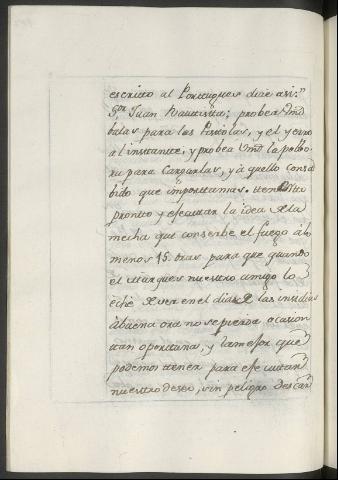 escrito al Portugues dice asi:"
Sor Juan Bautista: probea Vmd
balas para las Pistolas, y el yerro
al instante, y probea Vmd la polbo-
ra para Cargarlas, y aquello consa
bido que importamas. tten
prontto y efecutar la idea de la
mecha que conserbe el fuego alo
menos 15. oras para que quando
el Marques nuestro amigo lo
eche de ver en el dia de las insidias
abuena ora no se pierda ocasion
ttan oporttuna, y lamejor que
podemos ttener para efe cuttar
nuesttro deseo, sin peligro des car